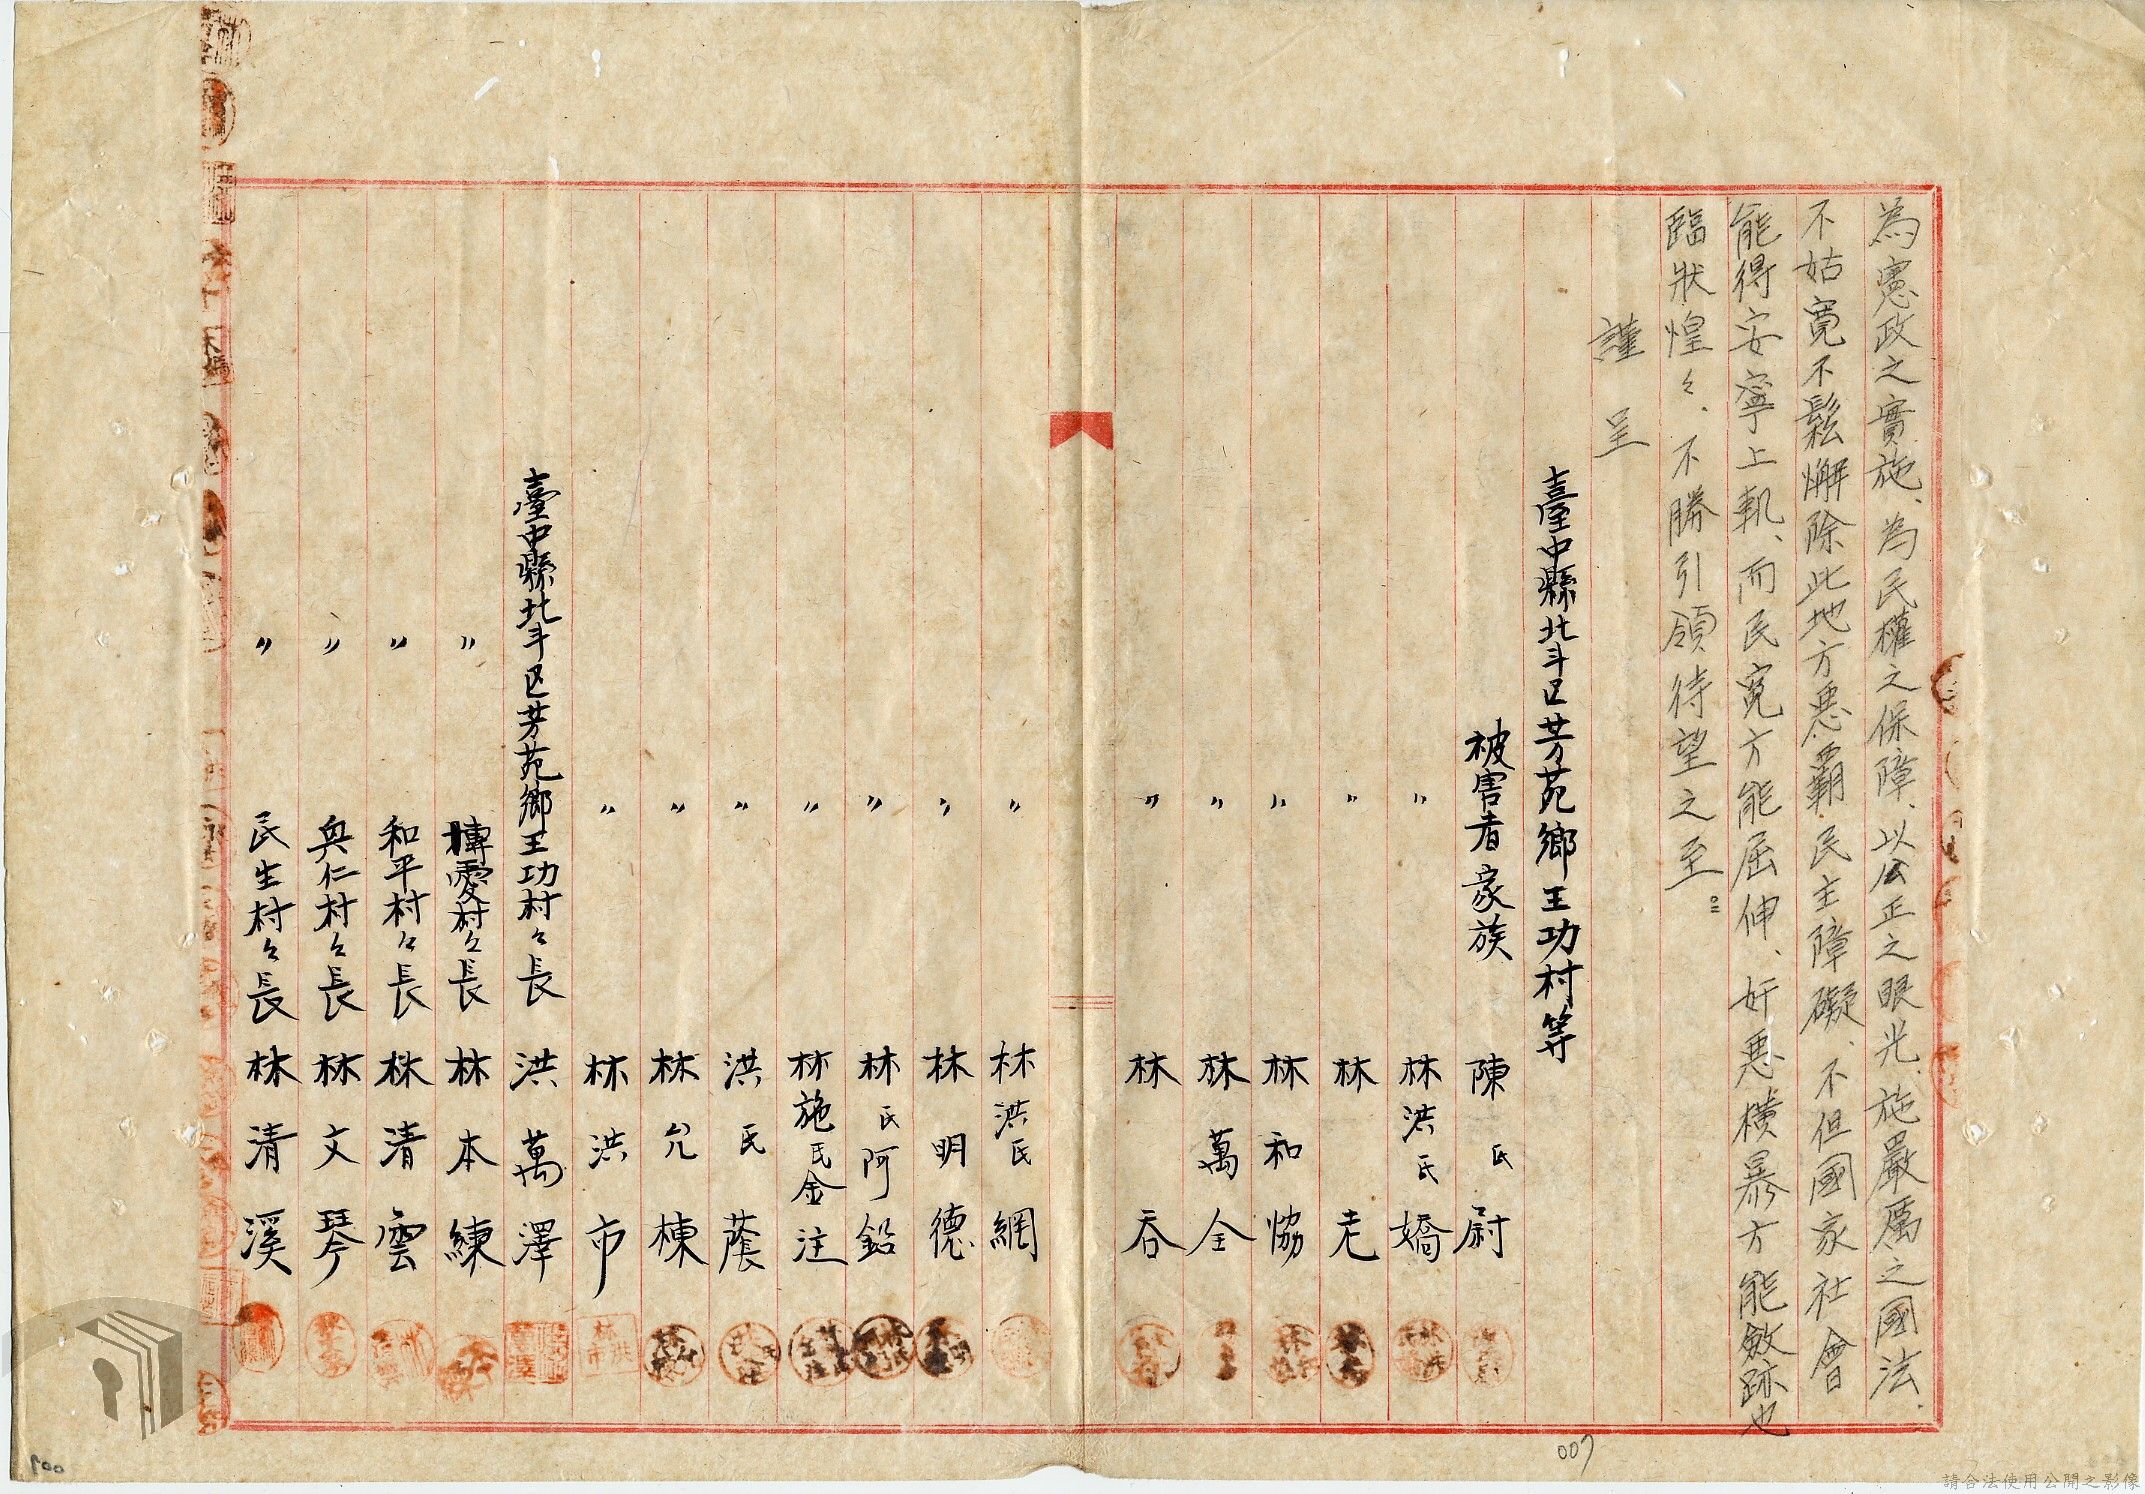 為憲政之實施、為民權之保障、以公正之眼光、施嚴厲之國法、
不姑寬不鬆懈除此地方惡霸民主障礙、不但國家社會
能得安寧上軌、而民冤方能屈伸、奸惡橫暴方能斂跡也
臨狀惶々、不勝引領待望之至。
謹呈
臺中縣北斗区芳苑鄉王功村等
被害者家族 陳氏尉
〃 林洪氏嬌
〃 林老
〃 林和協
〃 林萬全
〃 林吞
〃 林洪氏網
〃 林明德
〃 林氏阿鉛
〃 林施氏金注
〃 洪氏蔭
〃 林允棟
〃 林洪市
臺中縣北斗区芳苑鄉王功村々長 洪萬澤
〃 博愛村々長 林本練
〃 和平村々長 林清雲
〃 興仁村々長 林文琴
〃 民生村々長 林清溪
007
請合法使用公開之影像